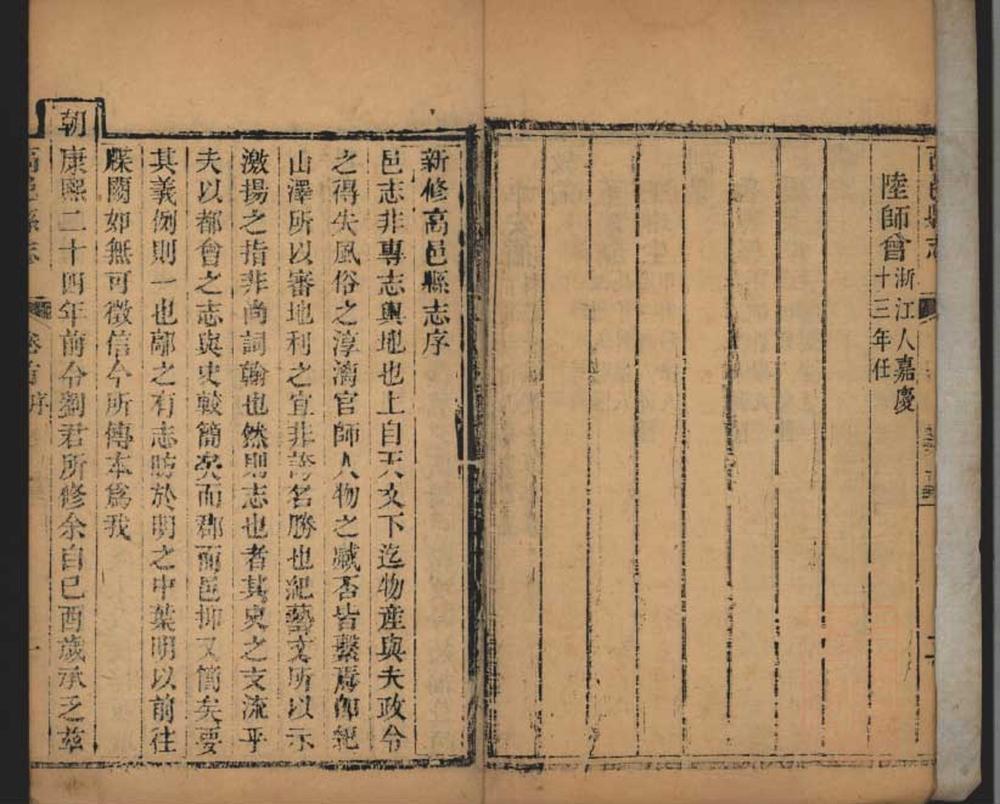 高邑縣志
陸師曾浙江人嘉慶
十三年任
新修高邑縣志序
邑志非專志輿地也上自天文下迄物產與夫政令
之得失風俗之淳漓官師人物之臧否皆繫焉卽紀
山澤所以審地利之宜非誇名勝也紀藝文所以示
激揚之指非尚詞翰也然則志也者其史之支流乎
夫以都會之志與史較簡矣而郡而邑抑又簡矣要
其義例則一也鄗之有志昉於明之中葉明以前往
牒闕如無可徵信今所傳本爲我
朝康熙二十四年前令劉君所修余自己酉歲承乏茲
高邑縣志 卷首 序 一